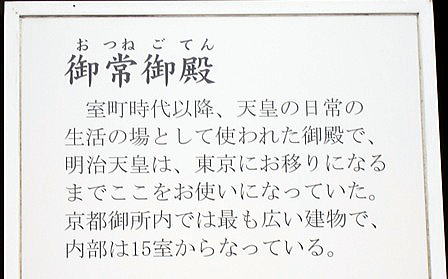 おつねごてん
御常御殿
室町時代以降、天皇の日常の
生活の場として使われた御殿で、
明治天皇は、東京にお移りになる
までここをお使いになっていた。
京都御所内では最も広い建物で、
内部は15室からなっている。